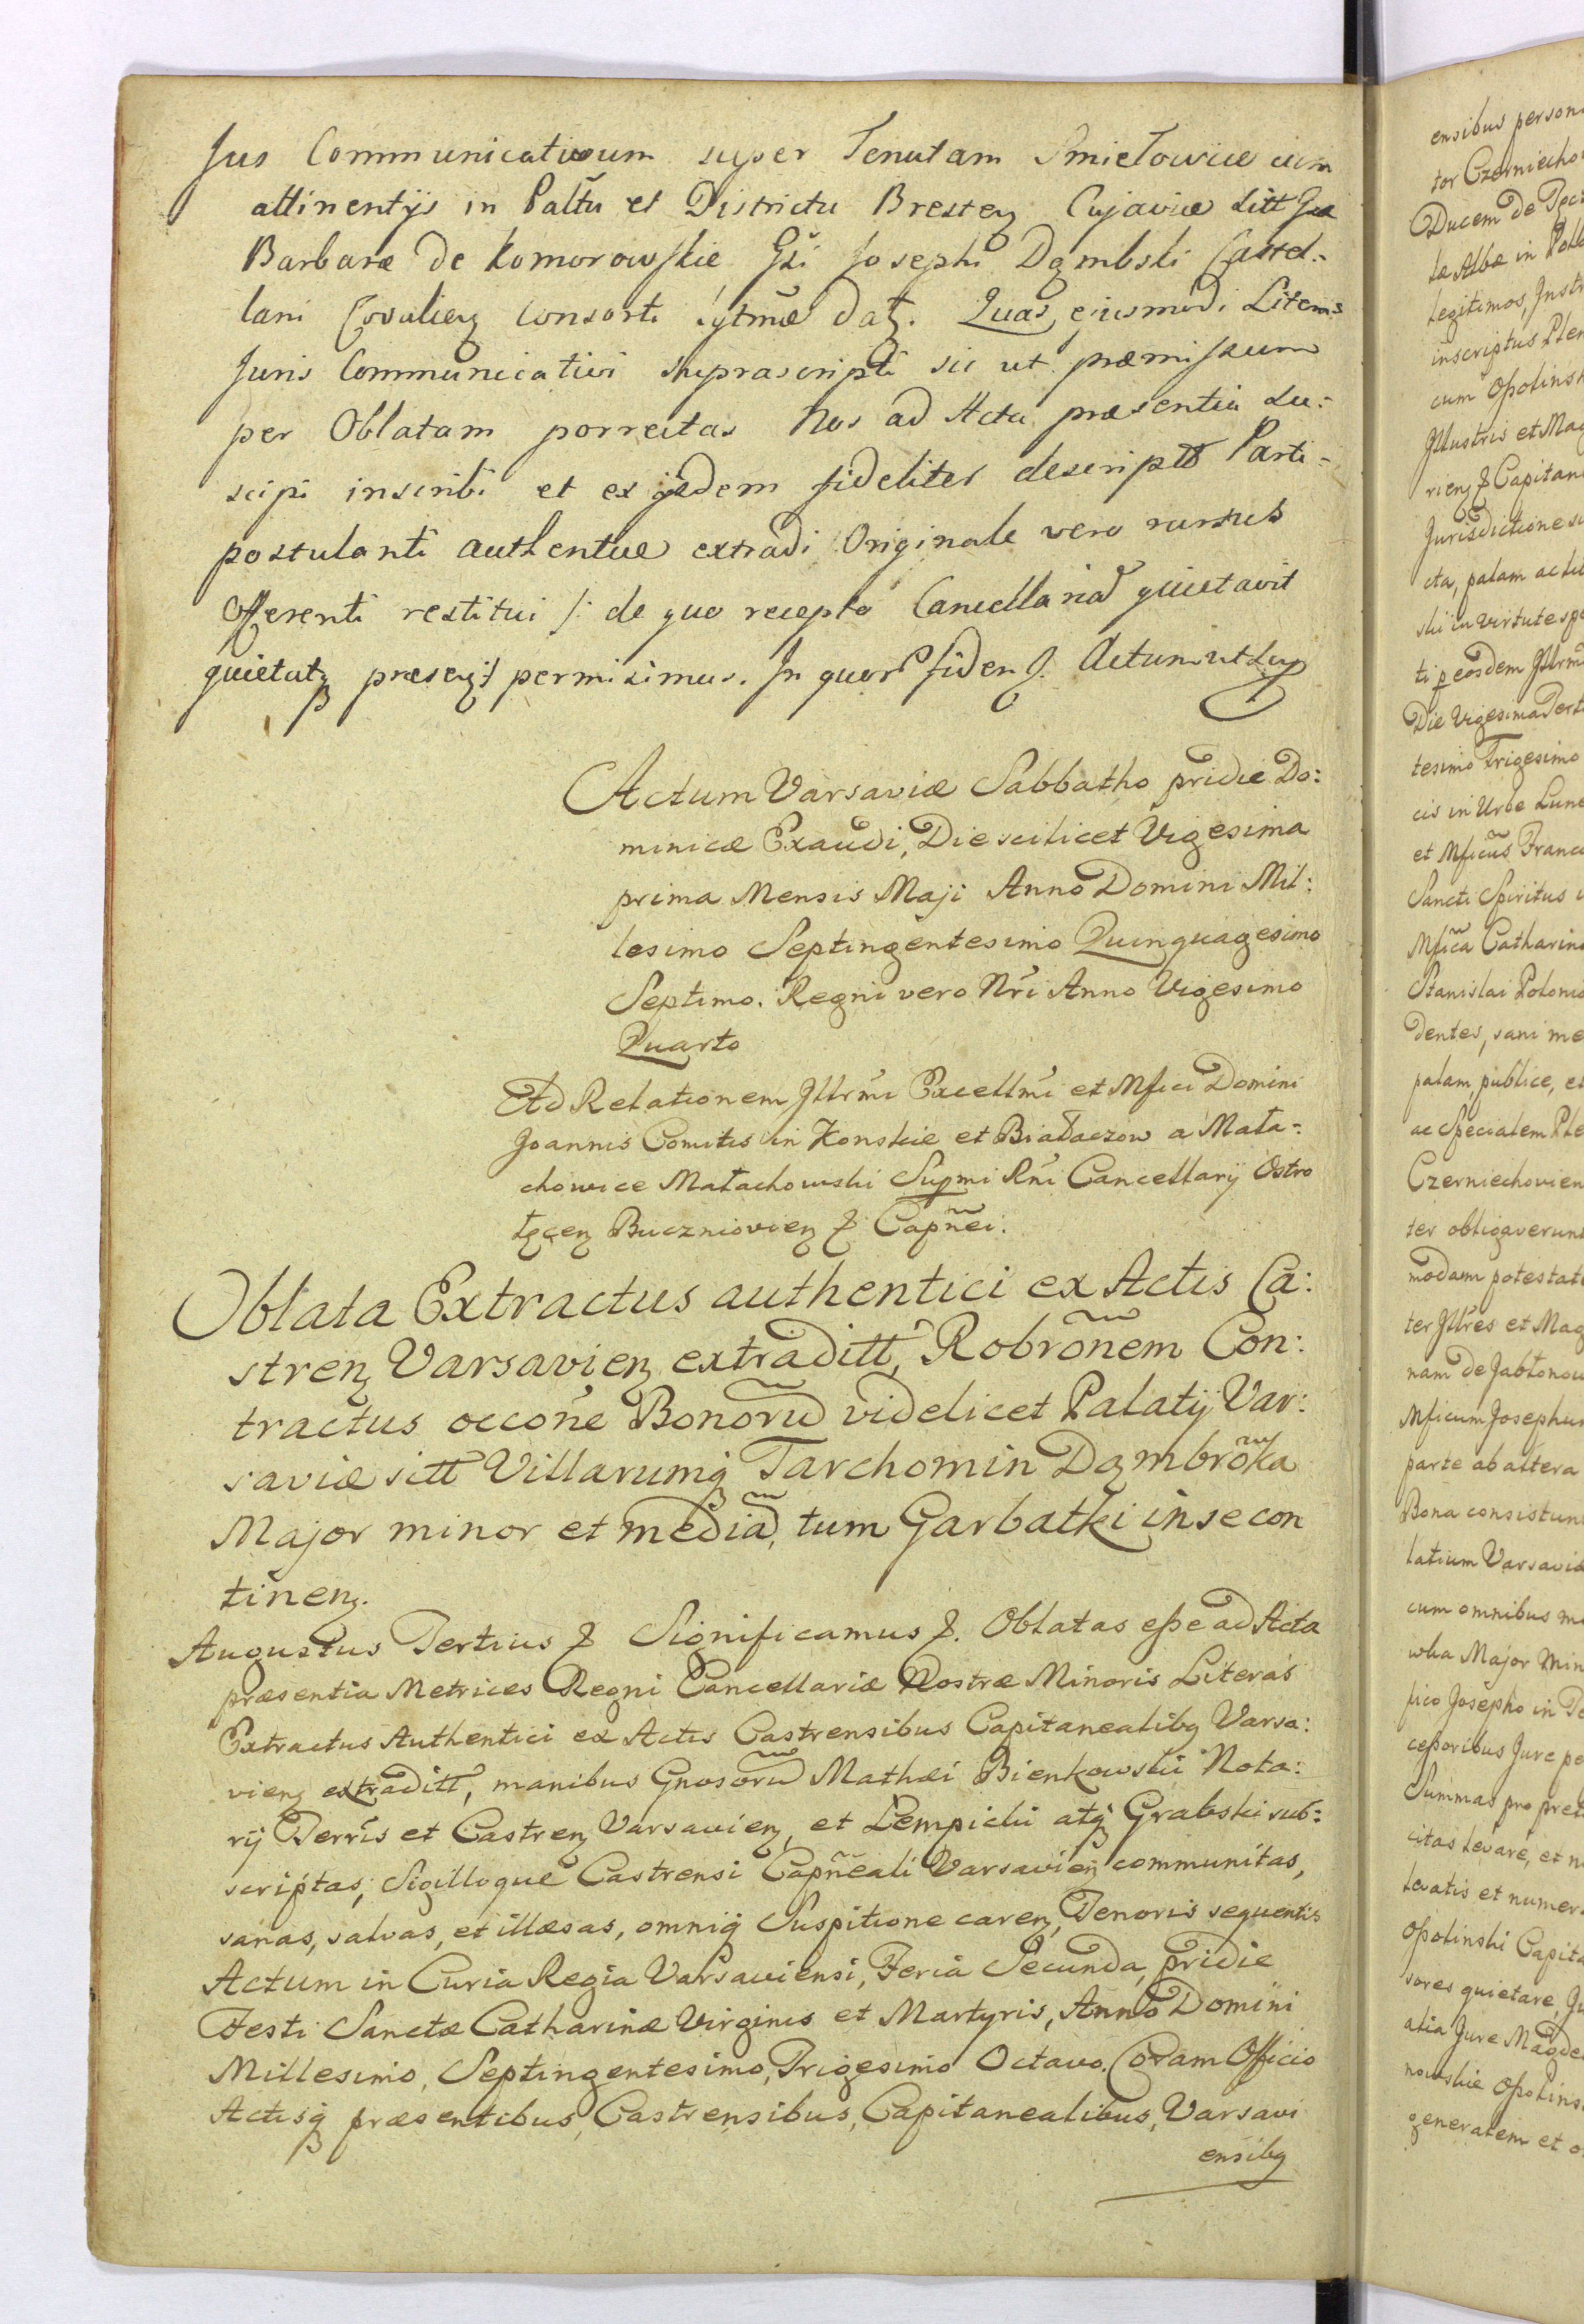 Jus Communicativum super Tenutam Smiełowice cum
attinentijs in Paltu et Districtu Bresten Cujaviæ sitt Gsæ
Barbaræ de Komorowskie Gsi Josephi Dąmbski Castel:
lani Covalien Consorti lgtmæ dat. Quas ejusmodi Literas
Juris Communicativi suprascripti sic ut præmissum
per Oblatam porrectas Nos ad Acta præsentia sus:
scipi inscribi et ex ijsdem fideliter descriptt Parti
postulanti authentice extradi Originale vero rursus
Offerenti restitui /: de quo recepto Cancellariã quietavit
quietatq præsen :/ permisimus. In quorũ fidem &. Actum ut sup
Actum Varsaviæ Sabbatho pridie Do:
minicæ Exaudi, Die scilicet Vigesima
prima Mensis Maji Anno Domini Mil:
lesimo Septingentesimo Quinquagesimo
Septimo. Regni vero Nri Anno Vigesimo
Quarto
Ad Relationem Jllrmi Excellmi et Mfici Domini
Joannis Comitis in Konskie et Białaczow a Mała=
chowice Małachowski Supmi Rni Cancellarij Ostro
łęcen Buczniovien & Capñei.
Oblata Extractus authentici ex Actis Ca:
stren Varsavien extraditt, Robrõnem Con:
tractus occõne Bonorũ videlicet Palatij Var:
saviæ sitt Villarumq Tarchomin Dąmbrõka
Major minor et mediã, tum Garbatki in se con
tinen.
Augustus Tertius & Significamus &. Oblatas esse ad Acta
præsentia Metrices Regni Cancellariæ Nostræ Minoris Literas
Extractus Authentici ex Actis Castrensibus Capitanealibq Varsa:
vien extraditt, manibus Gnosorũ Mathæi Bienkowski Nota:
rij Terris et Castren Varsavien, et Lempicki atq Grabski sub:
scriptas, Sigilloque Castrensi Capñeali Varsavien communitas,
sanas, salvas, et illæsas, omniq Suspitione caren, Tenoris sequentis
Actum in Curia Regia Varsaviensi, Feria Secunda, pridie
Festi Sanctæ Catharinæ Virginis et Martyris, Anno Domini
Millesimo, Septingentesimo, Trigesimo Octavo. Coram Officio
Actisq præsentibus, Castrensibus, Capitanealibus, Varsavi
ensibq
ensibus person
tor Czerniecho
Ducem de
ta Alba in Pala
legitimos, Instr
inscriptus Plen
cum Opolinsk
Jllustris et Mag
rien & Capitan
Jurisdictione
cta, palam ac li
ski in virtute spe
ti p eosdem Jllrm
Die Vigesima Tert
tesimo Trigesimo
cis in Urbe Lune
et Mficus Franc
Sancti Spiritus
Mfica Catharin
Stanislai Poloni
dentes, sani me
palam, publice, et
ac Specialem Ple
Czerniechovien
ter obligaverunt
modam potestat
ter Jllres et Mag
nam de Jabłonow
Mficum Josephum
parte ab altera
Bona consistun
latium Varsavia
cum omnibus
wka Major Min
fico Josepho in
cessoribus Jure pe
Summas pro pret
citas levare, et
levatis et numer
Opolinski Capita
sores quietare,
alia Jure Magde
nowskie Opolins
generalem et